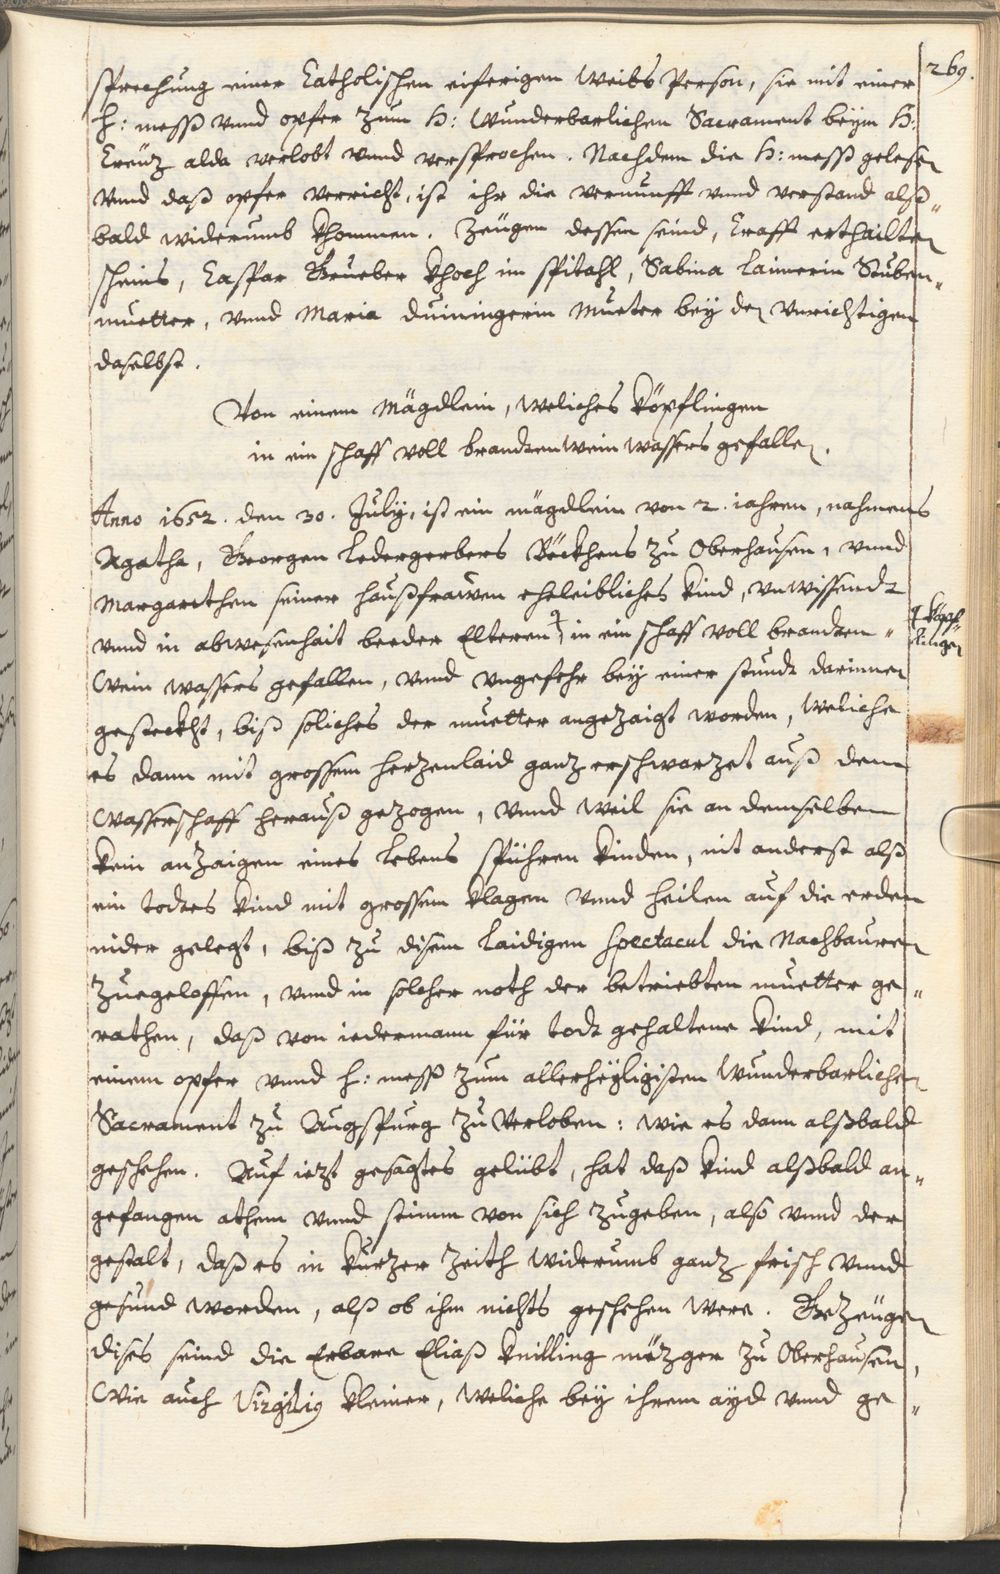 269.
sprechung einer Catholischen eiferigen Weibs Person, sie mit einer
h: mess vnnd opfer zum H: Wunderbarlichen Sacrament beÿm H:
Creütz alda verlobt vnnd versprochen. Nachdem die H: mess gelesen
vnnd daß opfer verricht, ist ihr die vernunfft vnnd verstand alß„
bald widerumb khommen. Zeügen dessen seind, Crafft erthailten
scheins, Caspar Grueber khoch im spitahl, Sabina Laimerin Stuben„
muetter, vnnd Maria Duiningerin Mueter beÿ den vnrichtigen
daselbst.
Von einem Mägdlein, weliches köpflingen
in ein schaff voll brandtenwein wassers gefallen.
Anno 1652. den 30. Julÿ, ist ein mägdlein von 2. iahren, nahmens
Agatha, Georgen Ledergerbers Böckhens zu Oberhausen, vnnd
Margarethen seiner haußfrawen eheleibliches kind, vnwissendt
vnnd in abwesenhait beeder Elteren in ein schaff voll brandten„
köpf„
lingen
Wein wassers gefallen, vnnd vngefehr beÿ einer stundt darinnen
gesteckht, biß soliches der muetter angezaigt worden, weliche
es dann mit grossem herzenlaid ganz erschwarzet auß dem
Wasserschaff herauß gezogen, vnnd weil sie an demselben
kein anzaigen eines lebens spühren kinden, nit anderst alß
ein todtes kind mit grossem klagen vnnd heilen auf die erden
nider gelegt, biß zu disem laidigen spectacul die Nachbauren
zuegeloffen, vnnd in solcher noth der betriebten muetter ge„
rathen, daß von iedermann für todt gehaltene kind, mit
einem opfer vnnd h: mess zum allerheÿligisten Wunderbarlichen
Sacrament zu Augspurg zu verloben: wie es dann alßbald
geschehen. Auf iezt gesagtes gelübt, hat daß kind alßbald an„
gefangen athem vnnd stimm von sich zugeben, also vnnd der
gestalt, daß es in kurzer zeith widerumb ganz frisch vnnd
gesund worden, alß ob ihm nichts geschehen were. Gezeügen
dises seind die Erbare Eliaß Knilling mezger zu Oberhausen,
Wie auch Virgilig Kleiner, weliche beÿ ihrem aÿd vnnd ge„